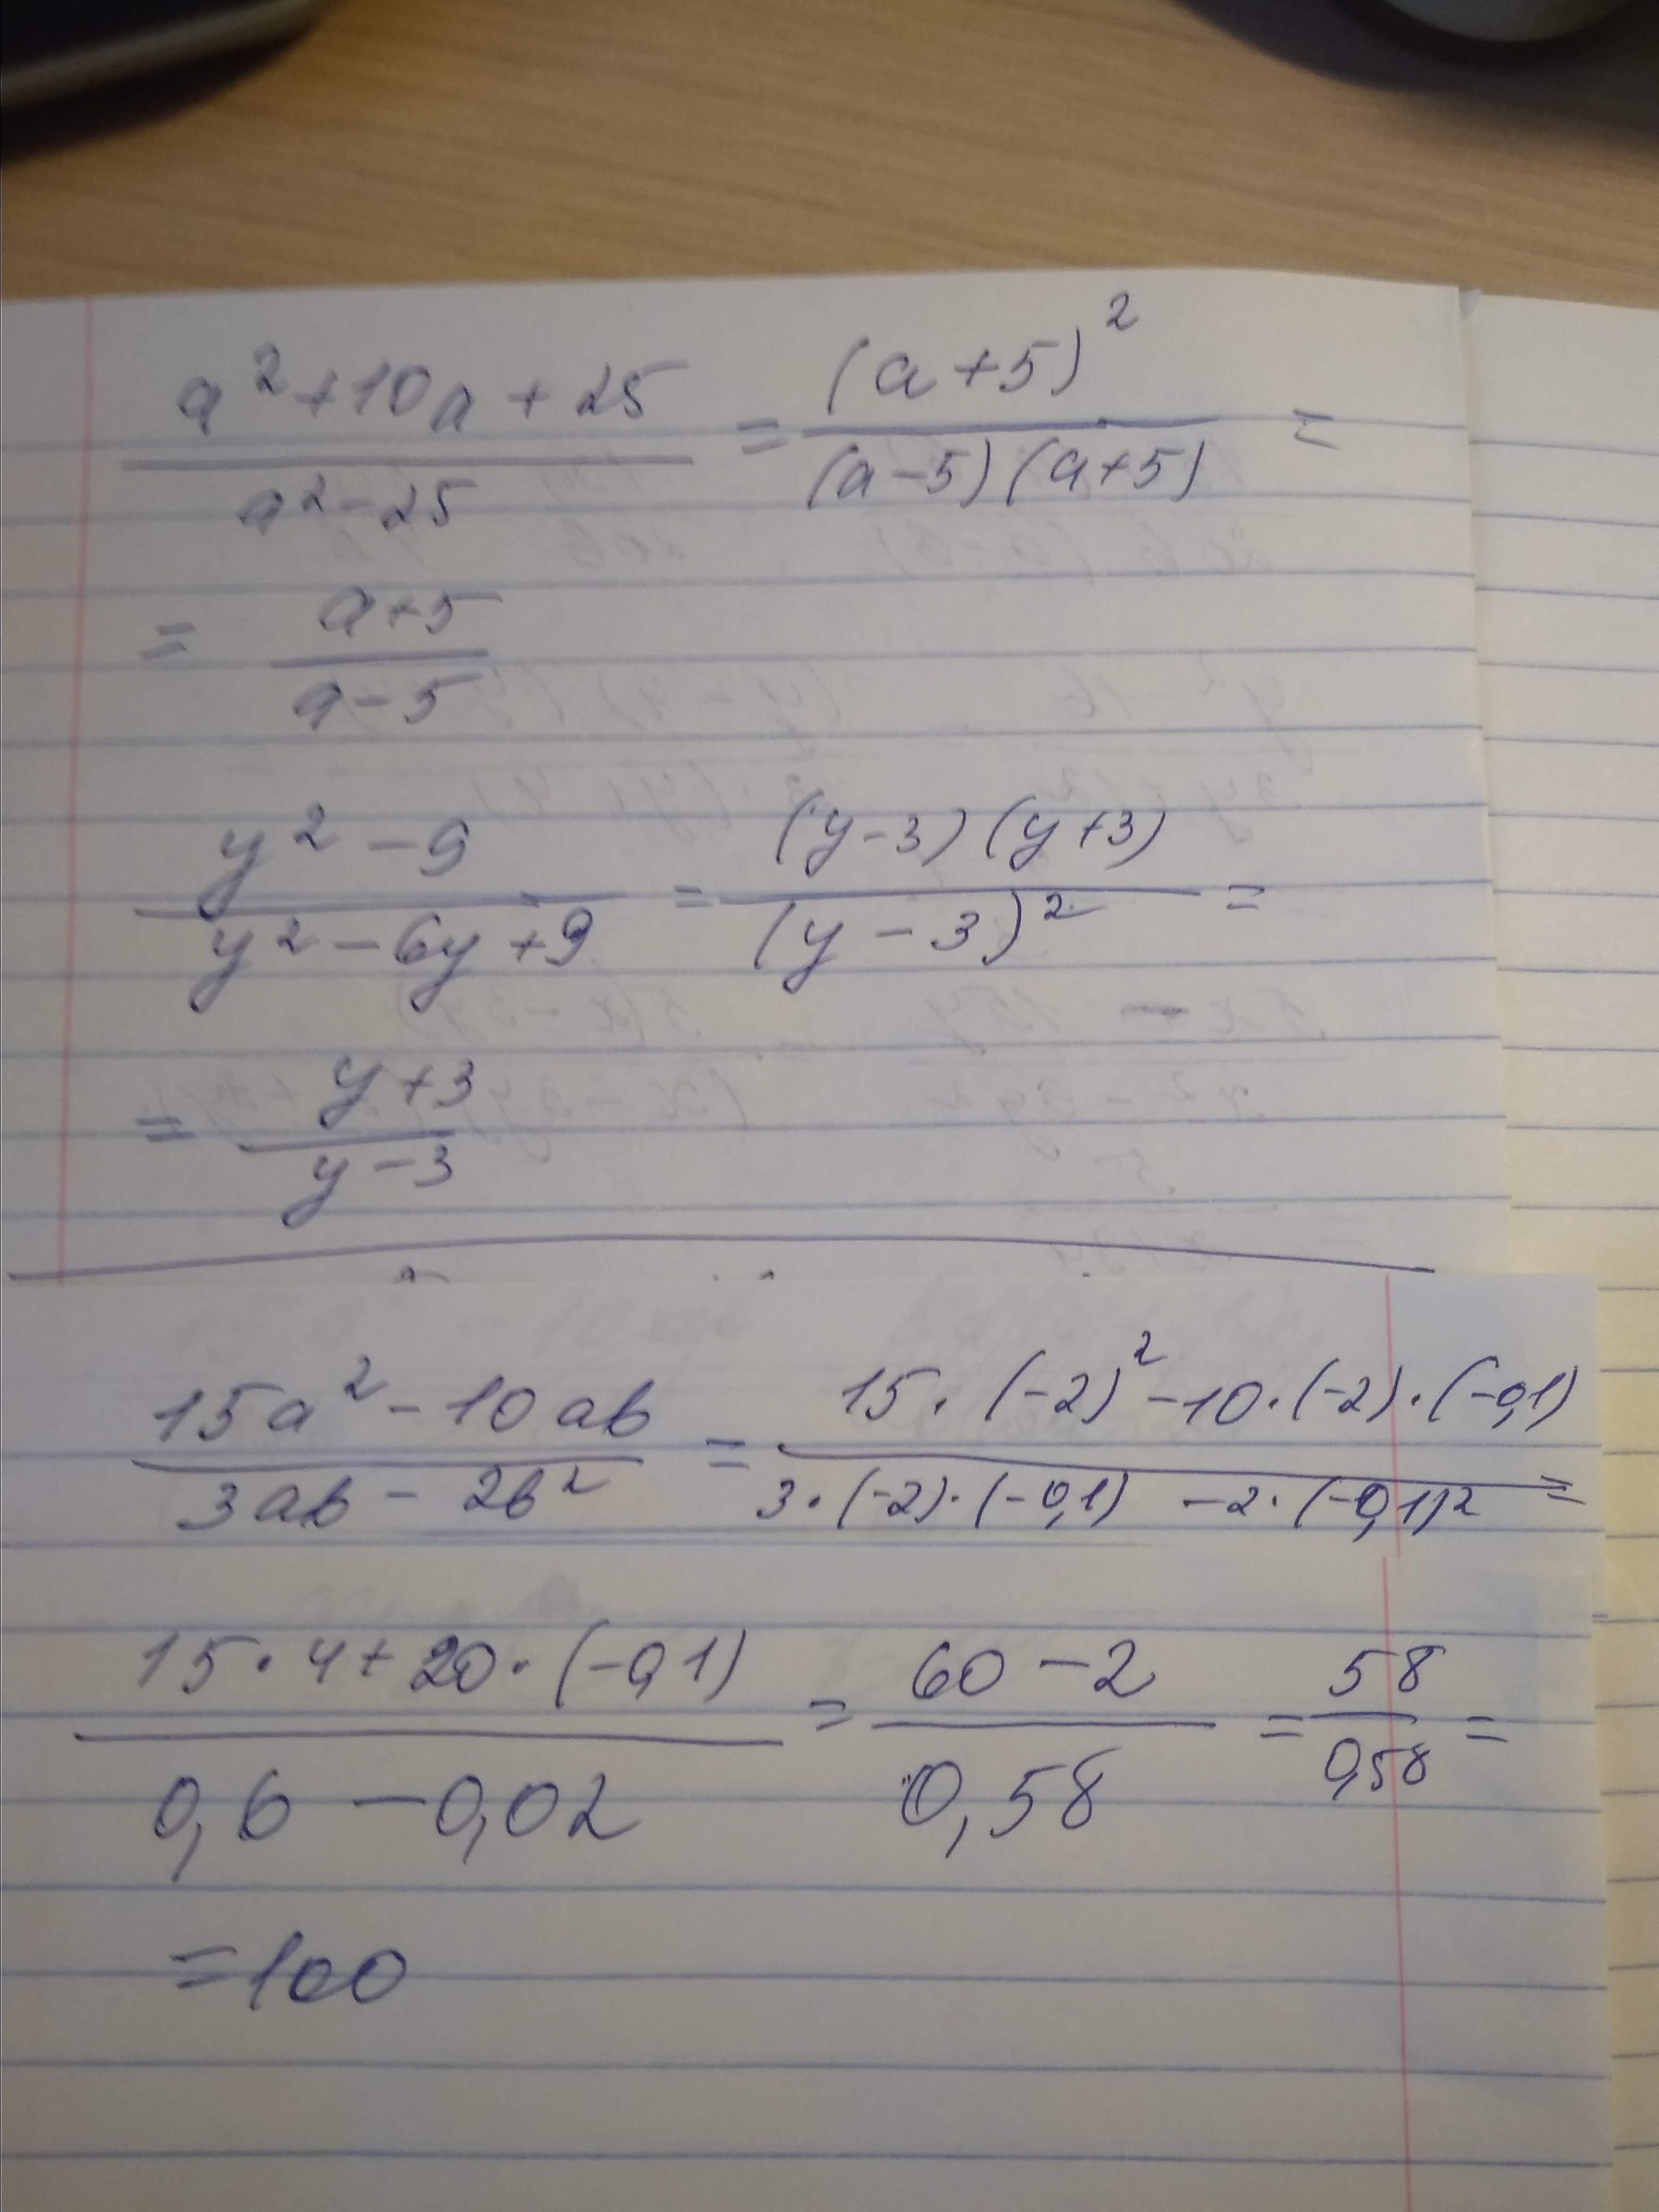 (a² + 10a + 25)/(a² - 25) = (a + 5)²/((a - 5)(a + 5)) =
= (a + 5)/(a - 5)
(y² - 9)/(y² - 6y + 9) = ((y - 3)(y + 3))/(y - 3)² =
= (y + 3)/(y - 3)
(15a² - 10ab)/(3ab - 2b²) = (15 · (-2)² - 10 · (-2) · (-0,1))/(3 · (-2) · (-0,1) - 2 · (-0,1)²) =
(15 · 4 + 20 · (-0,1))/(0,6 - 0,02) = (60 - 2)/0,58 = 58/0,58 =
= 100